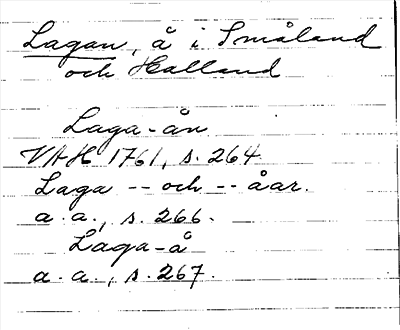 Lagan, å i Småland
och Halland
Laga-ån
VAH 1761, s. 264.
Laga -- och -- åar.
a. a., s. 266.
Laga-å
a. a., s. 267.